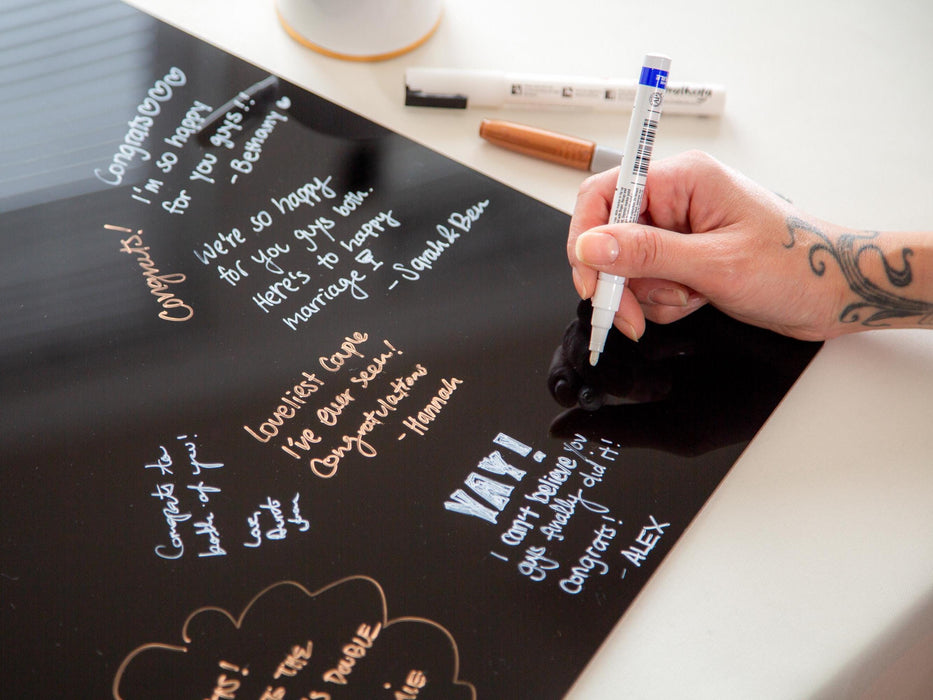 Congrats♡♡♡
I'm so happy
for you guys!!
-Bethany♥
Congrats!
We're so happy
for you guys both.
Here's to happy
marriage
-Sarah & Ben
Loveliest Couple
I've ever seen!
Congratulations
-Hannah
Congrats to
both of you!
Love,
YAY!
I can't believe you
guys finally did it!
Congrats!
- ALEX
THE
DOUBLE